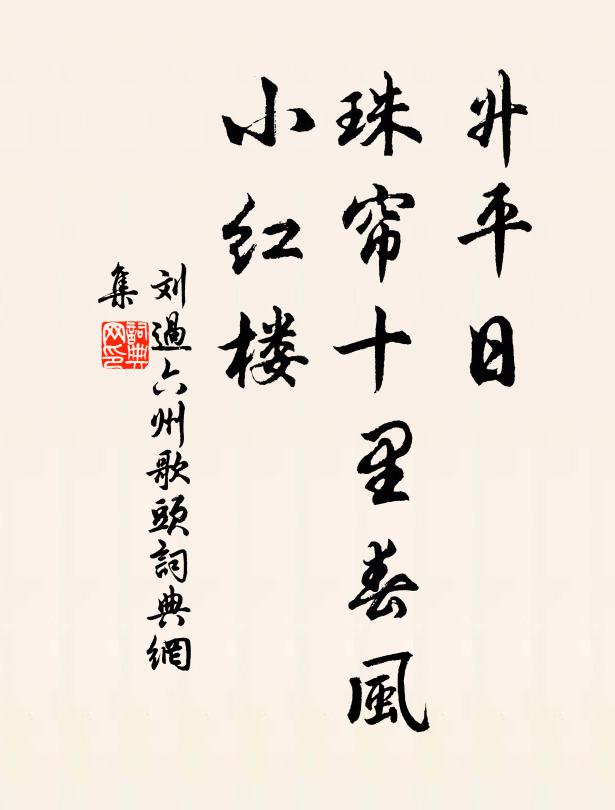 升平日
珠帘十里春風
小红楼
刘過六州歌頭詞典網
集
詞典网印